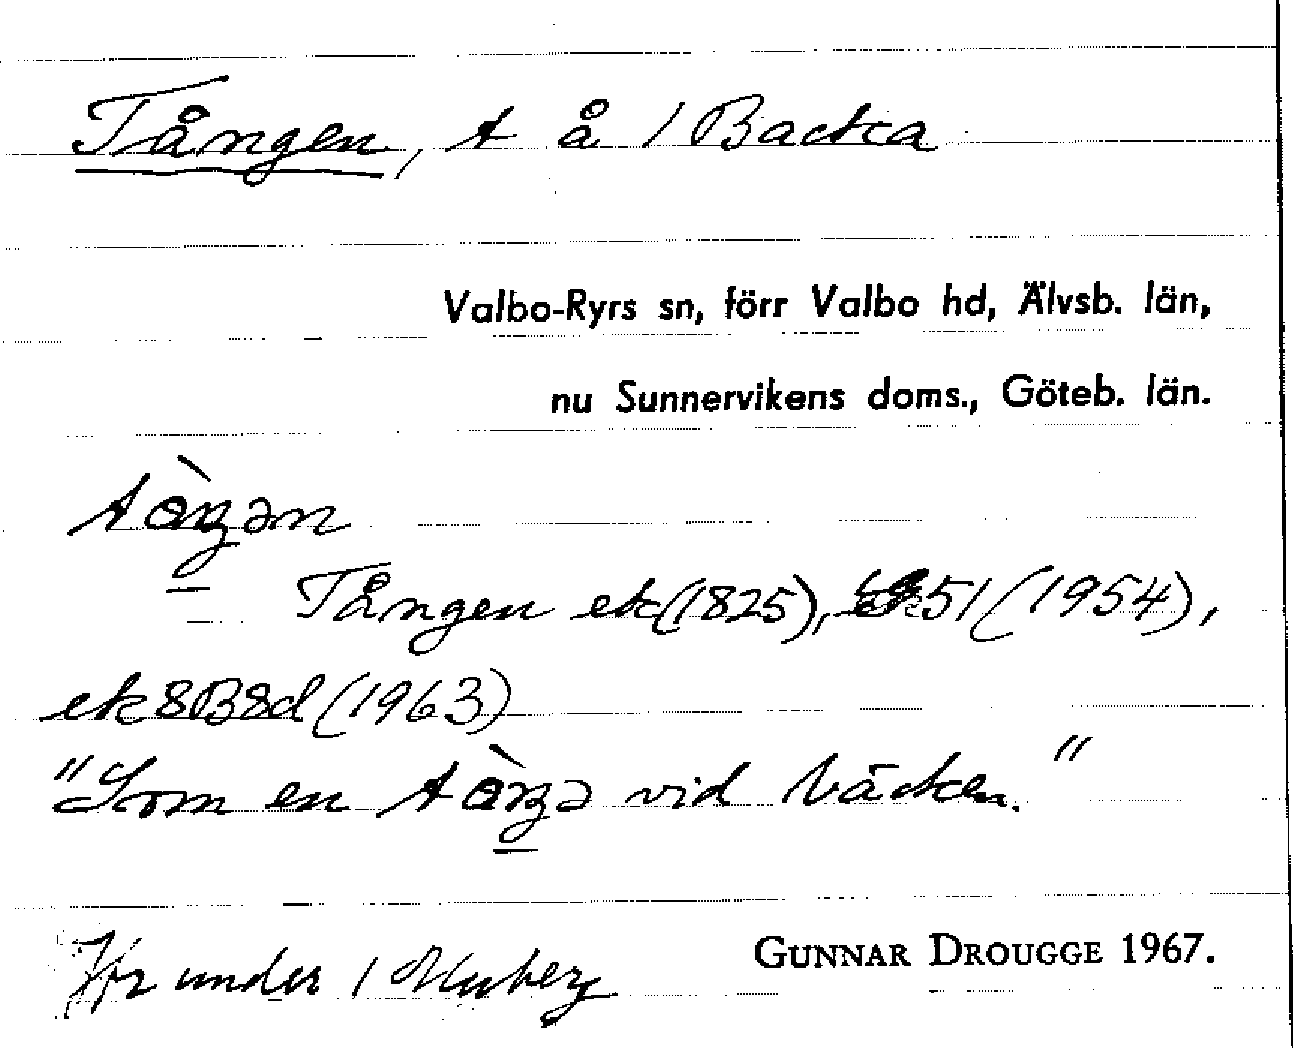 Tången, t å 1 Backa
Valbo-Ryrs sn, förr Valbo hd, Älvsb. län,
nu Sunnervikens doms., Göteb. län.
tòŋən
Tången ek (1825), 51 (1954),
ek 8B8d (1963)
"Som en tòŋə vid bäcken."
Jfr under 1
GUNNAR DROUGGE 1967.